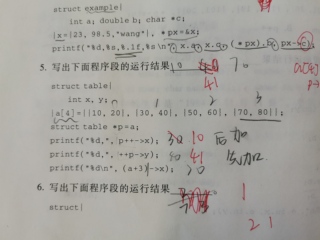 struct example{
int a; double b; char *c;
}x={23, 98.5,"wang"}, *px=&x;
printf("%d,%s,%.1f,%s\n", x.a, x.c, (*px).b, px->c);
5. 写出下面程序段的运行结果 70
41
struct table{
int x, y; 1 2 3
}a[4]={{10, 20}, {30, 40}, {50, 60}, {70, 80}};
struct table *p=a;
printf("%d,", p++->x); 30 10 后加
printf("%d,", ++p->y); 41 先加
printf("%d\n", (a+3)->x); 70
6. 写出下面程序段的运行结果 1
struct{ 2 1